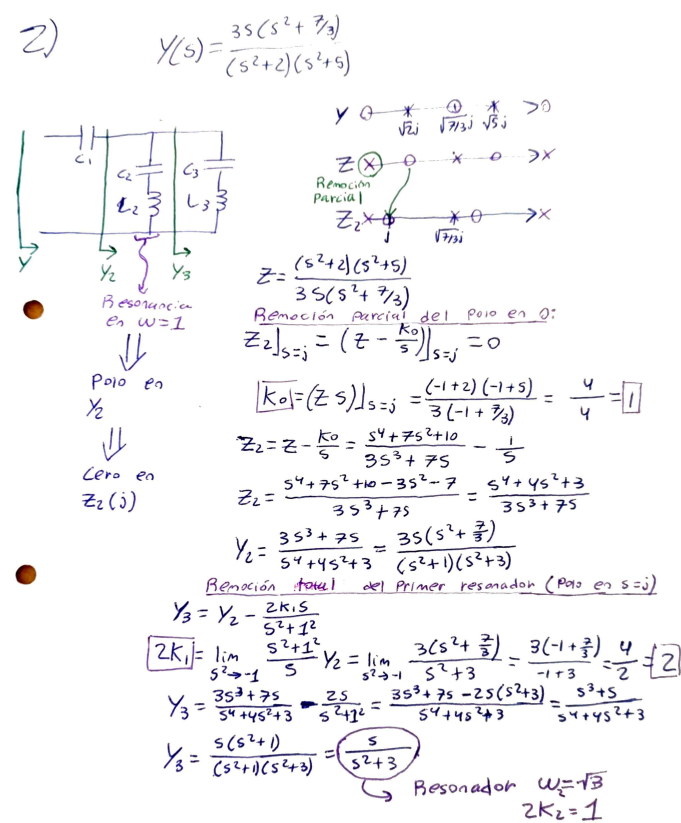 2) Y(s) = 3s(s² + 7/3) / (s²+2)(s²+5)
Y √2j 1 √7/3j √5j >0
C1 C2 C3 L2 L3
Z >X
Remoción
Parcial
Z2 j √7/3j >X
Y Y2 Y3
Resonancia
en ω=1
⇓
Polo en
Y2
⇓
Cero en
Z2(j)
Z = (s²+2)(s²+5) / 3s(s² + 7/3)
Remoción parcial del Polo en 0:
Z2]s=j = (Z - K0/s)]s=j = 0
K0 = (Z s)]s=j = (-1+2)(-1+5) / 3(-1+7/3) = 4/4 = 1
Z2 = Z - K0/s = s⁴+7s²+10 / 3s³+7s - 1/s
Z2 = s⁴+7s²+10-3s²-7 / 3s³+7s = s⁴+4s²+3 / 3s³+7s
Y2 = 3s³+7s / s⁴+4s²+3 = 3s(s²+7/3) / (s²+1)(s²+3)
Remoción total del Primer resonador (Polo en s=j)
Y3 = Y2 - 2K1s / s²+1²
2K1 = lim s²→-1 s²+1² / s Y2 = lim s²→-1 3(s²+7/3) / s²+3 = 3(-1+7/3) / -1+3 = 4/2 = 2
Y3 = 3s³+7s / s⁴+4s²+3 - 2s / s²+1² = 3s³+7s-2s(s²+3) / s⁴+4s²+3 = s³+s / s⁴+4s²+3
Y3 = s(s²+1) / (s²+1)(s²+3) = s / s²+3
Resonador ω2=√3
2K2=1